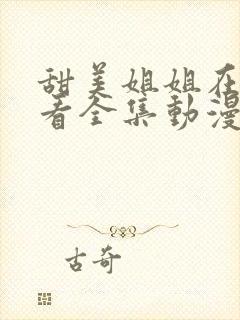 甜美姐姐在
看全集動漫
古奇